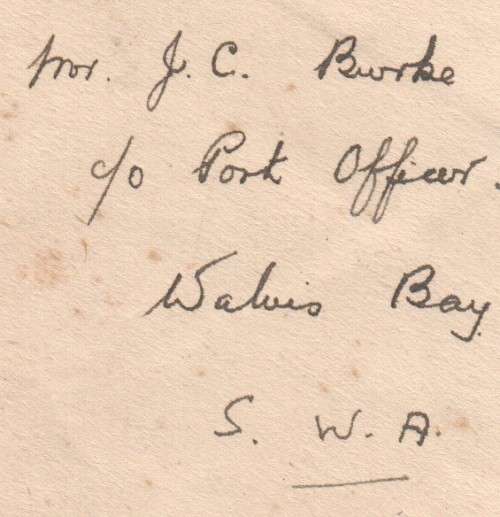 Mr. J. C. Burke
c/o Port Officer.
Walvis Bay
S. W. A.